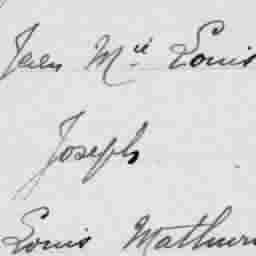 Jean Mie Louis
Joseph
Louis Mathurin